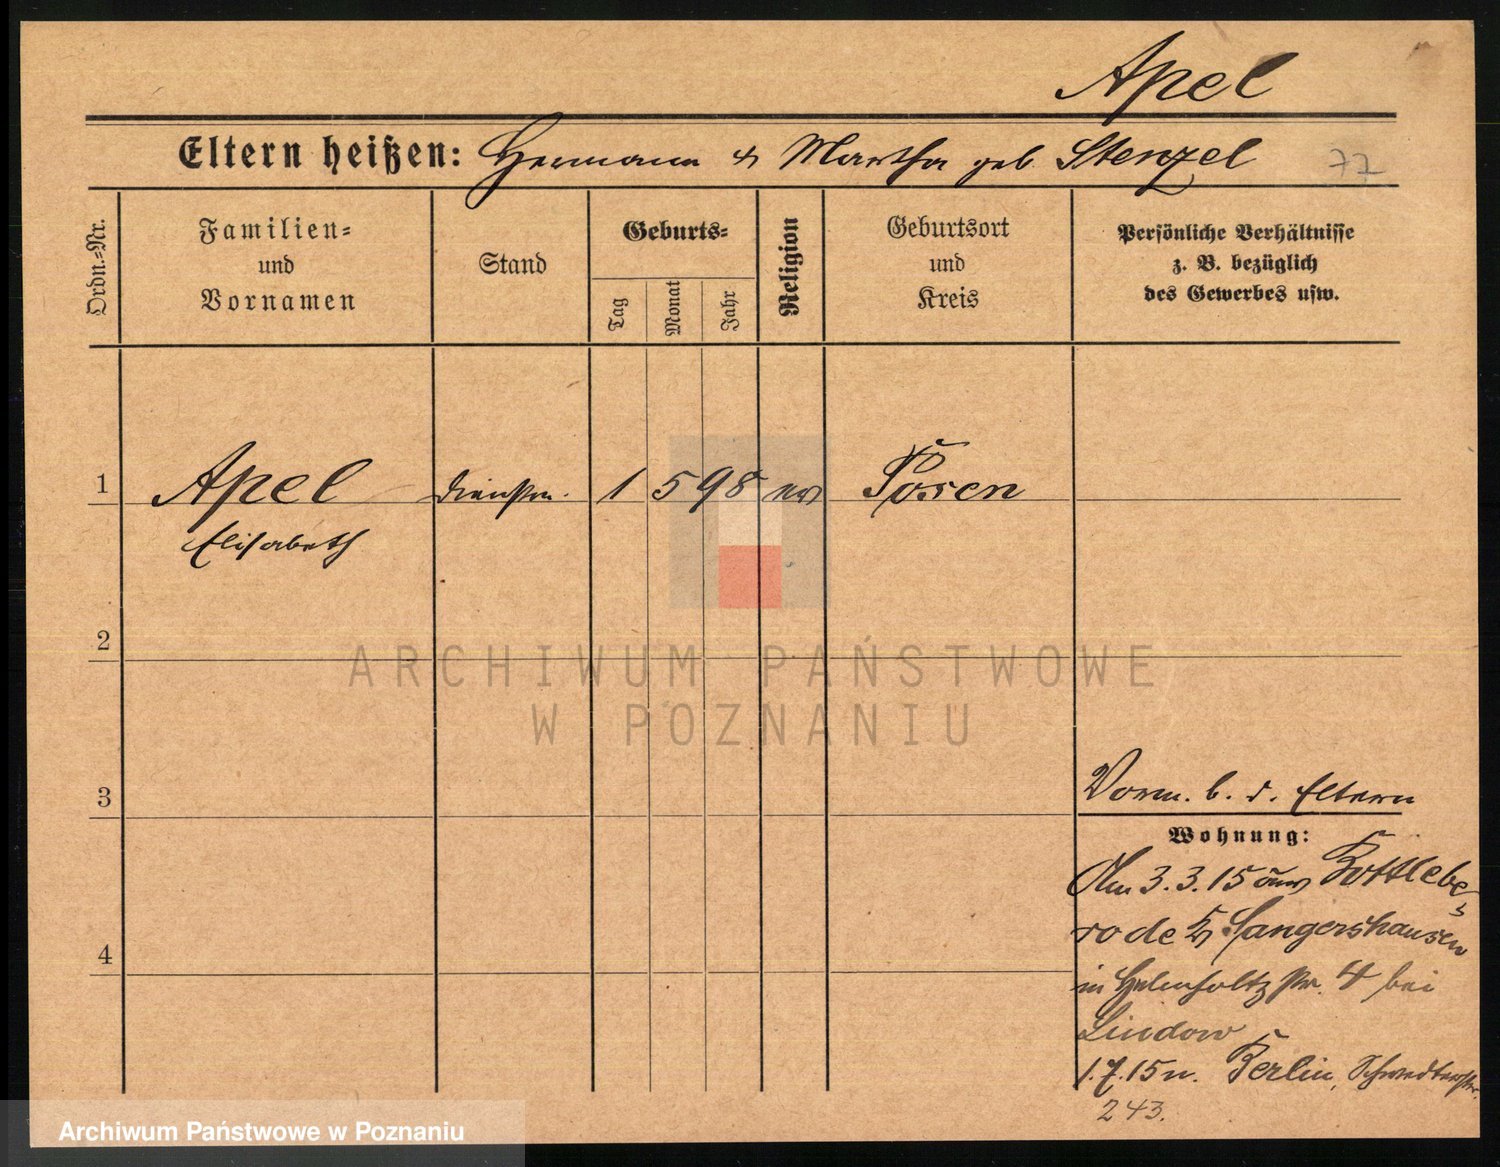 Apel
Eltern heißen: Hermann & Martha geb. Stenzel
77
Ordn.-Nr.
Familien-
und
Vornamen
Stand
Geburts-
Tag
Monat
Jahr
Religion
Geburtsort
und
Kreis
Persönliche Verhältnisse
z. B. bezüglich
des Gewerbes usw.
1 Apel Dienstm. 1 5 98 ev Posen
Elisabeth
2
ARCHIWUM PAŃSTWOWE
W POZNANIU
3
Vorm. b. d. Eltern
Wohnung:
Am 3.3.15 aus Rottlebe-
rode Kr Sangershausen
4
in Helmholtzstr. 4 bei
Lindow
1.7.15 n. Berlin, Schwedterstr.
243.
Archiwum Państwowe w Poznaniu